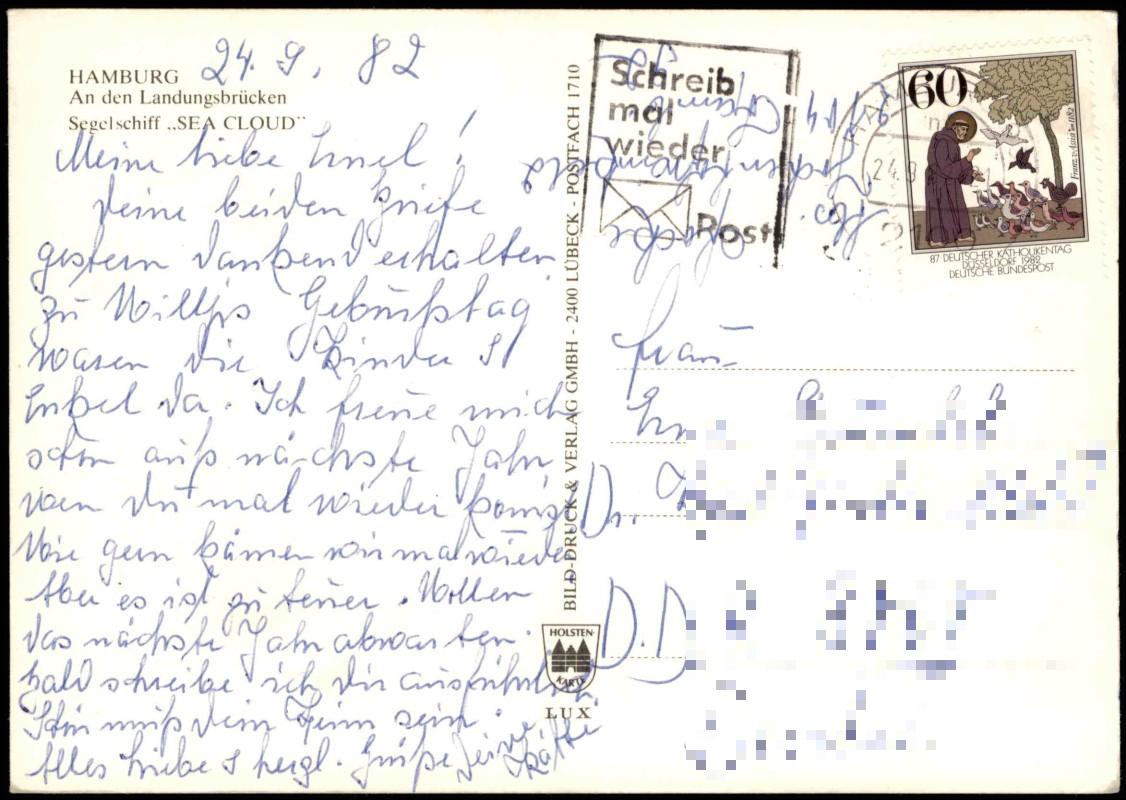 HAMBURG
An den Landungsbrücken
Segelschiff „SEA CLOUD"
24. 9. 82
Meine liebe
Deine beiden Briefe
gestern dankend erhalten
zu Willys Geburtstag
waren die Kinder &
Enkel da. Ich freue mich
schon aufs nächste Jahr
wen du mal wieder komst
Wie gern kämen wir mal wieder
Aber es ist zu teuer. Wollen
das nächste Jahr abwarten.
bald schreibe ich dir ausführlich.
Schön muß dein Heim sein.
Alles Liebe & herzl. Grüße Deine
Käthe
BILD-DRUCK & VERLAG GMBH - 2400 LÜBECK - POSTFACH 1710
HOLSTEN-
KARTE
LUX
Schreib
mal
wieder
Post
24.9
60
Franz v. Assisi
87 DEUTSCHER KATHOLIKENTAG
DÜSSELDORF 1982
DEUTSCHE BUNDESPOST
Frau
Dr.
D.D